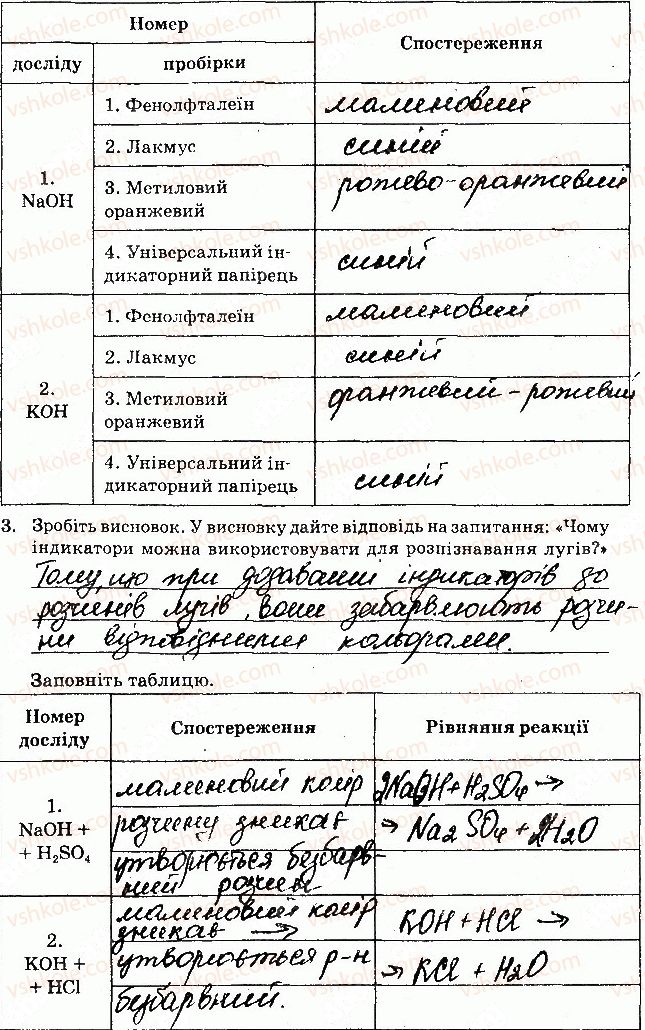 Номер
Спостереження
досліду
пробірки
1.
NaOH
1. Фенолфталеїн
малиновий
2. Лакмус
синій
3. Метиловий
оранжевий
рожево-оранжевий
4. Універсальний ін-
дикаторний папірець
синій
2.
KOH
1. Фенолфталеїн
малиновий
2. Лакмус
синій
3. Метиловий
оранжевий
оранжевий - рожевий
4. Універсальний ін-
дикаторний папірець
синій
3. Зробіть висновок. У висновку дайте відповідь на запитання: «Чому
індикатори можна використовувати для розпізнавання лугів?»
Тому, що при додаванні індикаторів до
розчинів лугів, вони забарвлюють розчи-
ни відповідними кольорами.
Заповніть таблицю.
Номер
досліду
Спостереження
Рівняння реакції
1.
NaOH +
+ H₂SO₄
малиновий колір
розчину зникає
утворюється безбарв-
ний розчин
2NaOH + H₂SO₄ →
→ Na₂SO₄ + 2H₂O
2.
KOH +
+ HCl
малиновий колір
зникає →
утворюється р-н
безбарвний.
KOH + HCl →
→ KCl + H₂O
vshkole.com